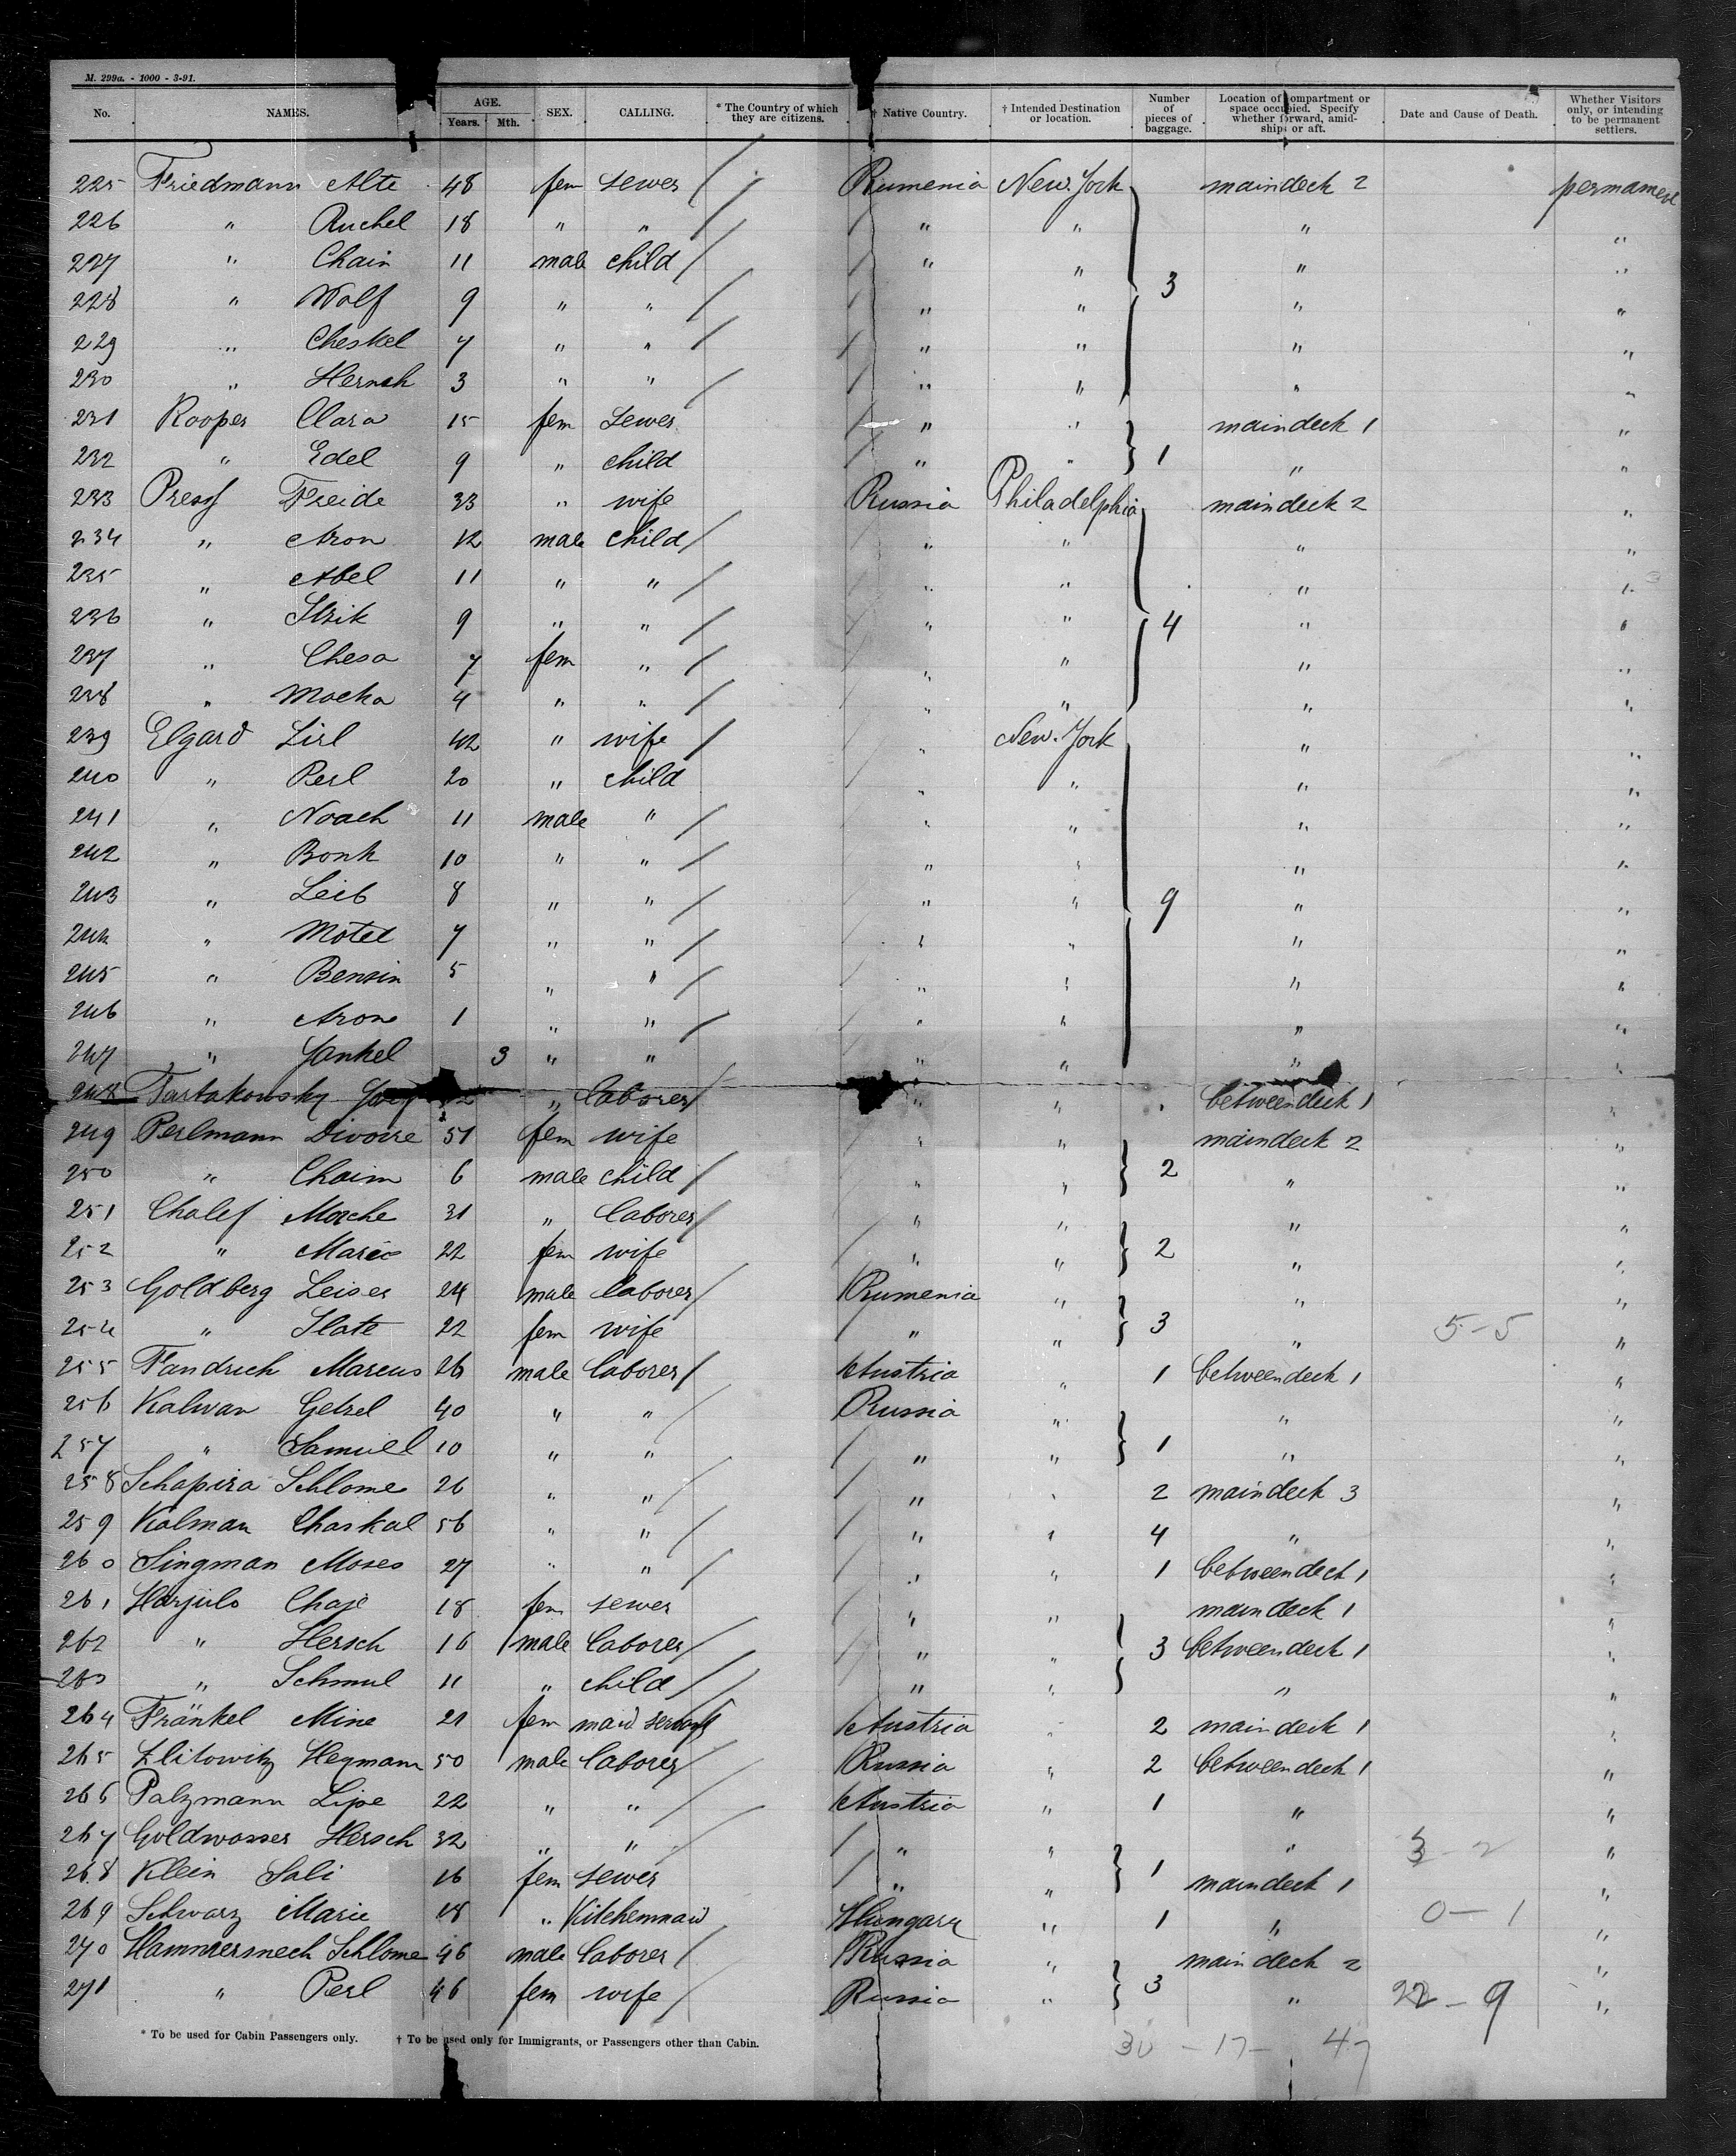 M. 299a. - 1000 - 3-91.
No. NAMES. AGE. Years. Mth. SEX. CALLING. * The Country of which they are citizens. † Native Country. † Intended Destination or location. Number of pieces of baggage. Location of compartment or space occupied. Specify whether forward, amid-ships or aft. Date and Cause of Death. Whether Visitors only, or intending to be permanent settlers.
225 Friedmann Alte 48 fem sewer / Rumenia New. York maindeck 2 permament
226 " Ruchel 18 " " / " " " "
227 " Chain 11 male child / " " " "
228 " Wolf 9 " " / " " 3 " "
229 " Cheskel 7 " " / " " " "
230 " Hersch 3 " " / " " " "
231 Rooper Clara 15 fem sewer " " maindeck 1 "
232 " Edel 9 " child " " 1 " "
233 Pressf Freide 33 " wife Russia Philadelphia maindeck 2 "
234 " Aron 12 male child / " " " "
235 " Abel 11 " " / " " " "
236 " Itzik 9 " " / " " 4 " "
237 " Chesa 7 fem " / " " " "
238 " Mocha 4 " " / " " " "
239 Elgard Lirl 42 " wife / " New. York " "
240 " Perl 20 " child " " " "
241 " Noach 11 male " / " " " "
242 " Bonh 10 " " / " " " "
243 " Leib 8 " " / " " 9 " "
244 " Motel 7 " " / " " " "
245 " Bensin 5 " " / " " " "
246 " Aron 1 " " / " " " "
247 " Jankel 3 " " " " " "
248 Tartakowsky " laborer / " " 1 betweendeck 1 "
249 Perlmann Divoire 51 fem wife " " maindeck 2 "
250 " Chaim 6 male child / " " 2 " "
251 Chalef Mosche 31 " laborer / " " " "
252 " Marie 22 fem wife " " 2 " "
253 Goldberg Leiser 24 male laborer / Rumenia " " "
254 " Slate 22 fem wife " " 3 " 5-5 "
255 Fandrich Marcus 26 male laborer / Austria " 1 betweendeck 1 "
256 Kalwan Getzel 40 " " / Russia " " "
257 " Samuel 10 " " " " 1 " "
258 Schapira Schlome 26 " " / " " 2 maindeck 3 "
259 Kalman Chaskal 56 " " / " " 4 " "
260 Singman Moses 27 " " / " " 1 betweendeck 1 "
261 Harjulo Chaje 18 fem sewer " " maindeck 1 "
262 " Hersch 16 male laborer / " " 3 betweendeck 1 "
263 " Schmul 11 " child / " " " "
264 Fränkel Mine 21 fem maid servant Austria " 2 maindeck 1 "
265 Zlitowitz Heymann 50 male laborer / Russia " 2 betweendeck 1 "
266 Palzmann Lipe 22 " " / Austria " 1 " "
267 Goldwasser Hersch 32 " " / " " " 3-2 "
268 Klein Sali 16 fem sewer " " 1 maindeck 1 "
269 Schwarz Marie 18 " Kitchenmaid Hungary " 1 " 0-1 "
270 Hammersmech Schlome 46 male laborer / Russia " maindeck 2 "
271 " Perl 46 fem wife / Russia " 3 " 22-9 "
* To be used for Cabin Passengers only. † To be used only for Immigrants, or Passengers other than Cabin.
30 - 17 - 47